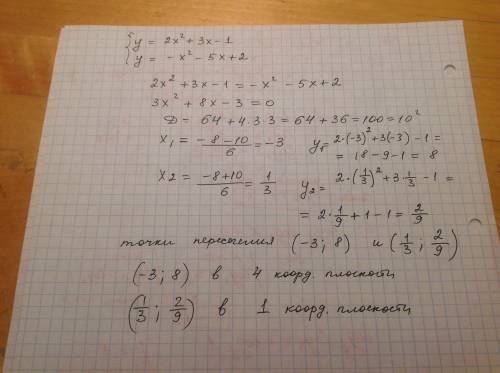 y = 2x² + 3x - 1
y = - x² - 5x + 2
2x² + 3x - 1 = - x² - 5x + 2
3x² + 8x - 3 = 0
D = 64 + 4 · 3 · 3 = 64 + 36 = 100 = 10²
x₁ = (-8 - 10)/6 = -3 y₁ = 2·(-3)² + 3(-3) - 1 =
= 18 - 9 - 1 = 8
x2 = (-8 + 10)/6 = 1/3 y₂ = 2·(1/3)² + 3·1/3 - 1 =
= 2·1/9 + 1 - 1 = 2/9
точки пересечения (-3; 8) и (1/3; 2/9)
(-3; 8) в 4 коорд. плоскости
(1/3; 2/9) в 1 коорд. плоскости